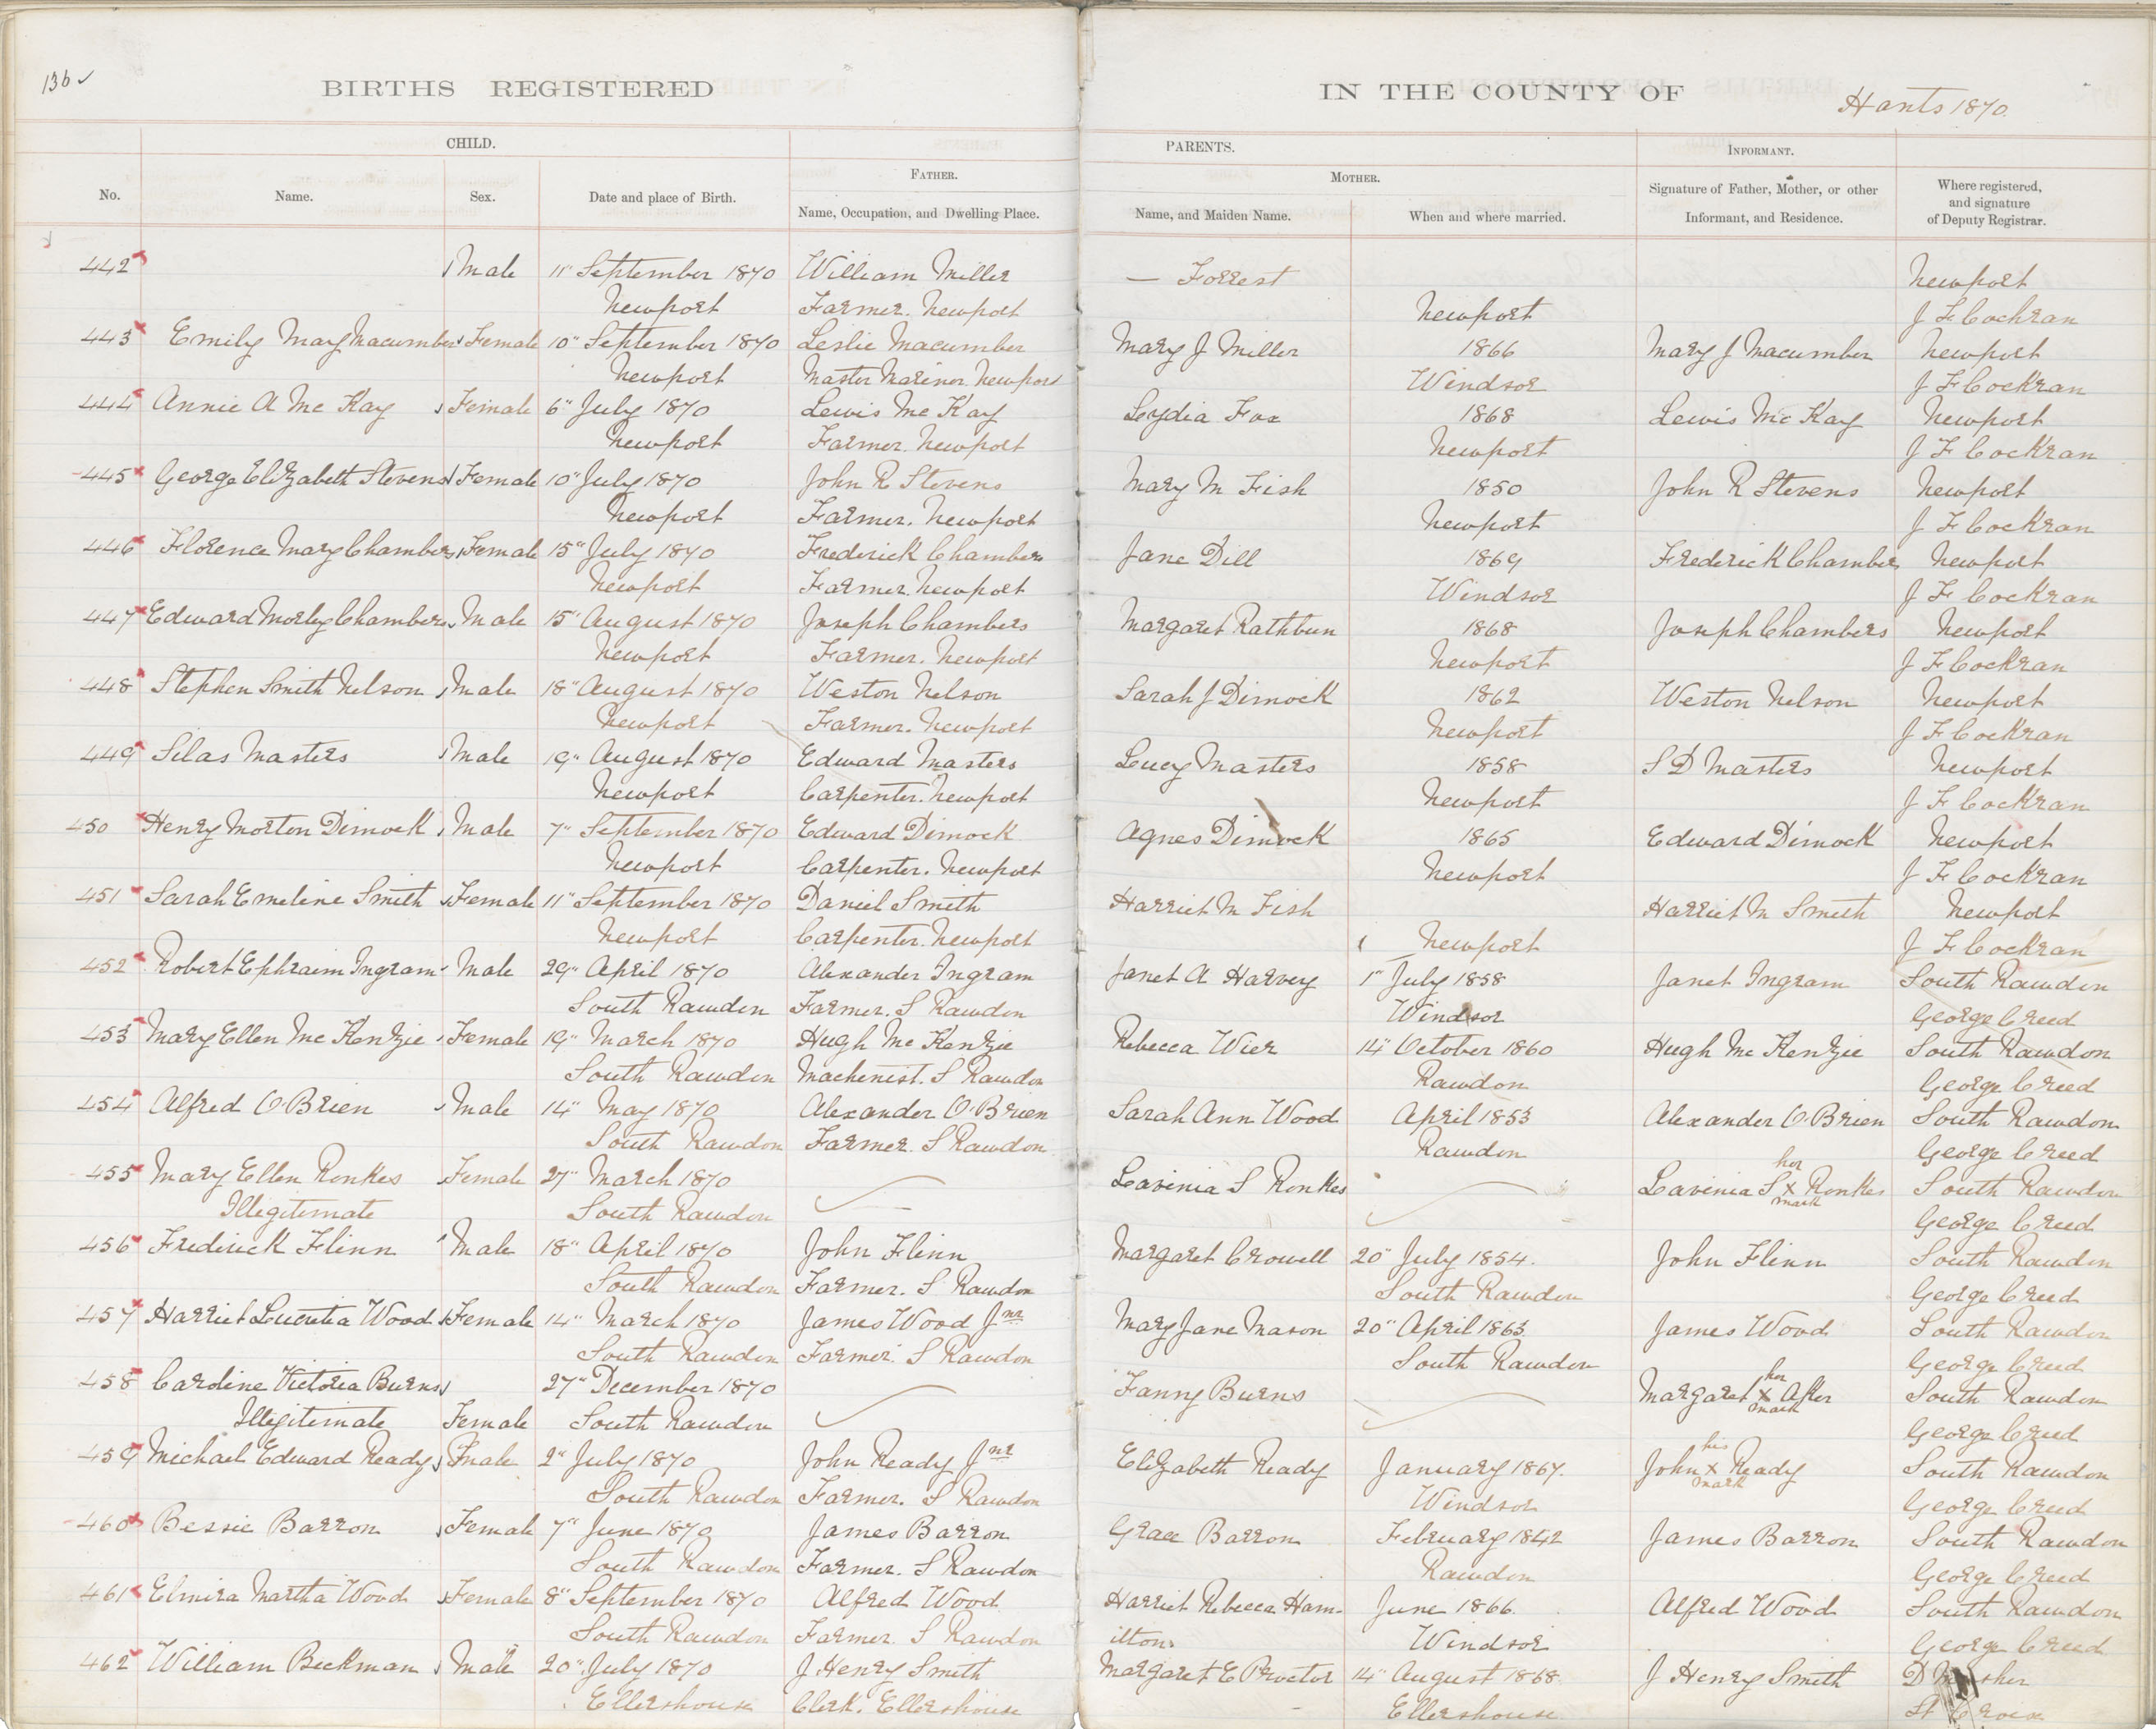 136
BIRTHS REGISTERED IN THE COUNTY OF Hants 1870.
CHILD. PARENTS. INFORMANT.
FATHER. MOTHER.
No. Name. Sex. Date and place of Birth. Name, Occupation, and Dwelling Place. Name, and Maiden Name. When and where married. Signature of Father, Mother, or other Informant, and Residence. Where registered, and signature of Deputy Registrar.
442 Male 11" September 1870 William Miller — Forrest Newport
Newport Farmer. Newport Newport J F Cochran
443 Emily May Macumber Female 10" September 1870 Leslie Macumber Mary J Miller 1866 Mary J Macumber Newport
Newport Master Mariner. Newport Windsor J F Cockran
444 Annie A Mc Kay Female 6" July 1870 Lewis Mc Kay Lydia Fox 1868 Lewis Mc Kay Newport
Newport Farmer. Newport Newport J F Cockran
445 George Elizabeth Stevens Female 10" July 1870 John R Stevens Mary M Fish 1850 John R Stevens Newport
Newport Farmer. Newport Newport J F Cockran
446 Florence Mary Chambers Female 15" July 1870 Frederick Chambers Jane Dill 1869 Frederick Chambers Newport
Newport Farmer. Newport Windsor J F Cockran
447 Edward Morley Chambers Male 15" August 1870 Joseph Chambers Margaret Rathbun 1868 Joseph Chambers Newport
Newport Farmer. Newport Newport J F Cockran
448 Stephen Smith Nelson Male 18" August 1870 Weston Nelson Sarah J Dimock 1862 Weston Nelson Newport
Newport Farmer. Newport Newport J F Cockran
449 Silas Masters Male 19" August 1870 Edward Masters Lucy Masters 1858 S D Masters Newport
Newport Carpenter. Newport Newport J F Cockran
450 Henry Morton Dimock Male 7" September 1870 Edward Dimock Agnes Dimock 1865 Edward Dimock Newport
Newport Carpenter. Newport Newport J F Cockran
451 Sarah Emeline Smith Female 11" September 1870 Daniel Smith Harriet M Fish Harriet M Smith Newport
Newport Carpenter. Newport Newport J F Cockran
452 Robert Ephraim Ingram Male 29" April 1870 Alexander Ingram Janet A Harvey 1" July 1858 Janet Ingram South Rawdon
South Rawdon Farmer. S Rawdon Windsor George Creed
453 Mary Ellen Mc Kenzie Female 19" March 1870 Hugh Mc Kenzie Rebecca Wier 14" October 1860 Hugh Mc Kenzie South Rawdon
South Rawdon Machenist. S Rawdon Rawdon George Creed
454 Alfred O'Brien Male 14" May 1870 Alexander O'Brien Sarah Ann Wood April 1853 Alexander O'Brien South Rawdon
South Rawdon Farmer. S Rawdon Rawdon George Creed
455 Mary Ellen Ronkes Female 27" March 1870 Lavinia S Ronkes Lavinia S her x mark Ronkes South Rawdon
Illegitimate South Rawdon George Creed
456 Frederick Flinn Male 18" April 1870 John Flinn Margaret Crowell 20" July 1854. John Flinn South Rawdon
South Rawdon Farmer. S Rawdon South Rawdon George Creed
457 Harriet Lucretia Wood Female 14" March 1870 James Wood Jnr Mary Jane Mason 20" April 1863. James Wood South Rawdon
South Rawdon Farmer. S Rawdon South Rawdon George Creed
458 Caroline Victoria Burns 27" December 1870 Fanny Burns Margaret her x mark South Rawdon
Illegitimate Female South Rawdon George Creed
459 Michael Edward Ready Male 2" July 1870 John Ready Jnr Elizabeth Ready January 1867. John his x mark Ready South Rawdon
South Rawdon Farmer. S Rawdon Windsor George Creed
460 Bessie Barron Female 7" June 1870 James Barron Grace Barron February 1842 James Barron South Rawdon
South Rawdon Farmer. S Rawdon Rawdon George Creed
461 Elmira Martha Wood Female 8" September 1870 Alfred Wood Harriet Rebecca Ham- June 1866. Alfred Wood South Rawdon
South Rawdon Farmer. S Rawdon ilton Windsor George Creed
462 William Beckman Male 20" July 1870 J Henry Smith Margaret E Proctor 14" August 1868. J Henry Smith D
Ellershouse Clerk. Ellershouse Ellershouse St Croix